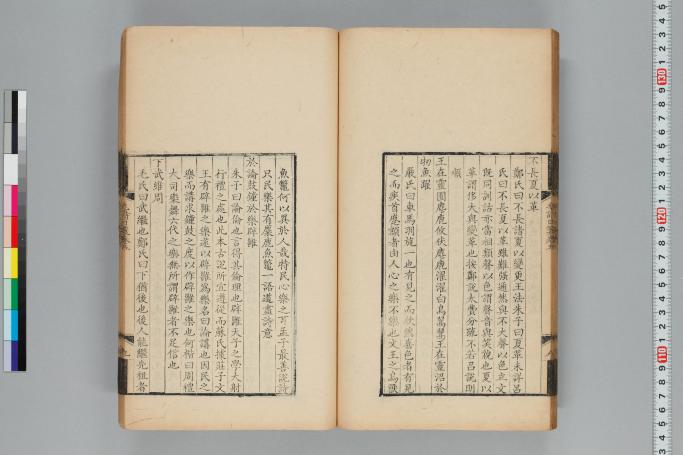 不長夏以革
鄭氏曰不長諸夏以變更王法朱子曰夏革未詳呂
氏曰不長夏以革雖難強通然與不大聲以色立文
既同訓詁亦當相類聲以色謂聲音與笑貌也夏以
革謂侈大與變革也按鄭說太費分疏不若呂說明
順
王在靈囿麀鹿攸伏麀鹿濯濯白鳥翯翯王在靈沼於
牣魚躍
嚴氏曰車馬羽旄一也有見之而欣欣喜色者有見
之而疾首蹙頞者由人心之樂不樂也文王之鳥獸
魚鼈何以異於人哉特民心樂之耳孟子最善說詩
只民樂其有麋鹿魚鼈一語道盡詩意
於論鼓鐘於樂辟雝
朱子曰論倫也言得其倫理也辟雝天子之學大射
行禮之處也此本古說所宜遵從而蘇氏據莊子文
王有辟雝之樂遂以辟雝為樂名曰論講也因民之
樂而講求鐘鼓之度以作辟雝之樂也何楷曰周禮
大司樂舞六代之樂無所謂辟雝者不足信也
下武維周
毛氏曰武繼也鄭氏曰下猶後也後人能繼先祖者